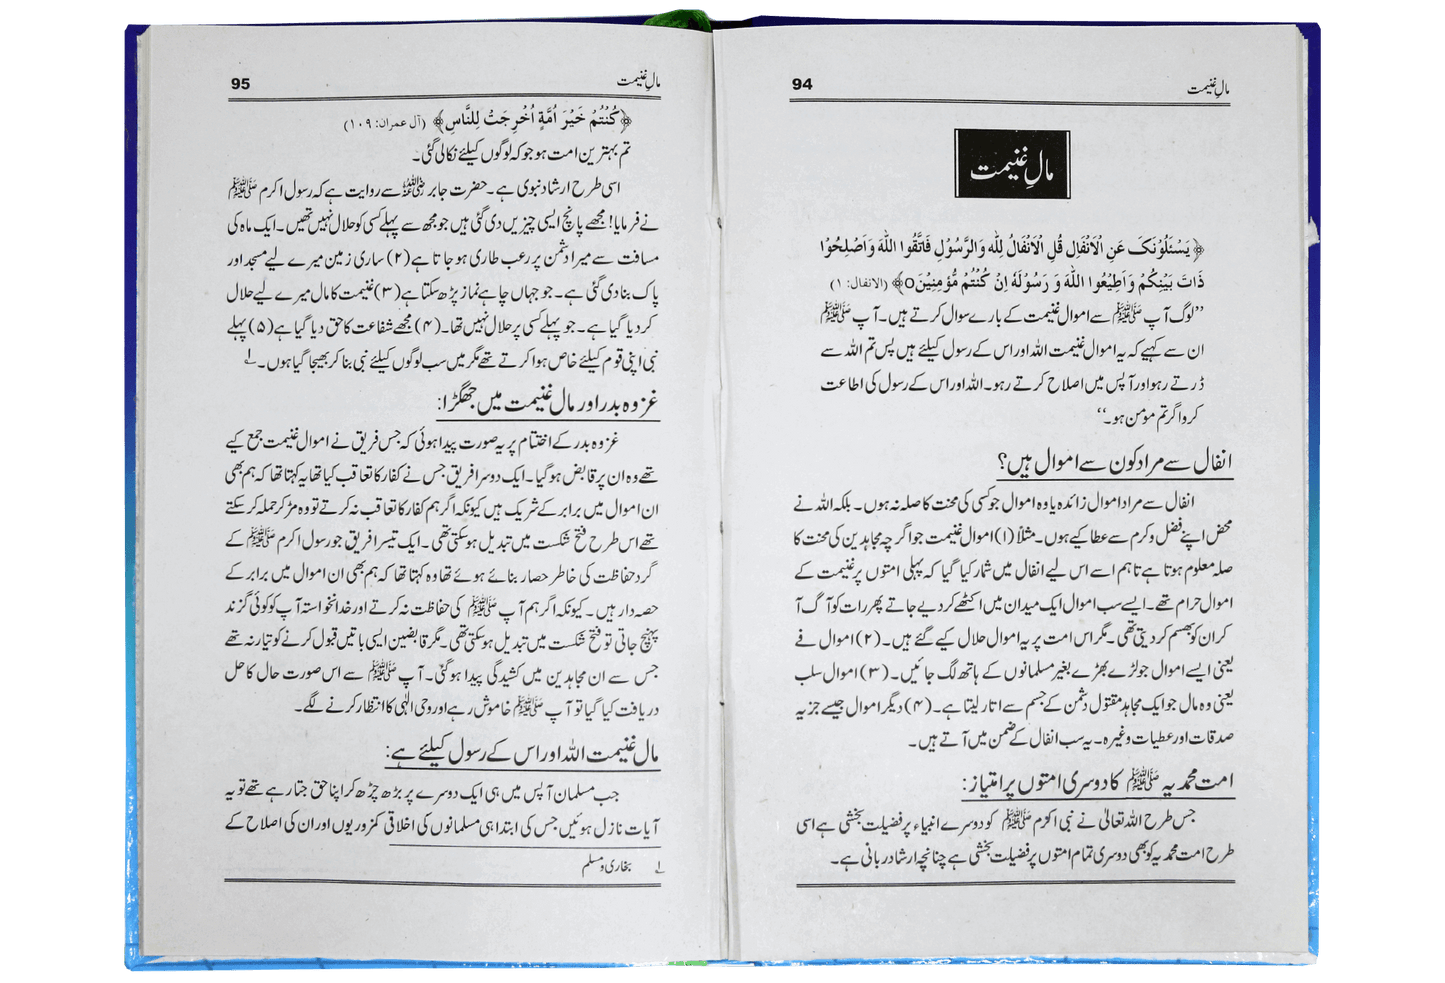 مالِ غنیمت
94
مالِ غنیمت
﴿یَسْئَلُوْنَکَ عَنِ الْاَنْفَالِ قُلِ الْاَنْفَالُ لِلّٰهِ وَالرَّسُوْلِ فَاتَّقُوا اللّٰهَ وَاَصْلِحُوْا
ذَاتَ بَیْنِکُمْ وَاَطِیْعُوا اللّٰهَ وَ رَسُوْلَهٗ اِنْ کُنْتُمْ مُّؤْمِنِیْنَ٥﴾ (الانفال: ١)
’’لوگ آپ ﷺ سے اموال غنیمت کے بارے سوال کرتے ہیں۔ آپ ﷺ
ان سے کہیے کہ یہ اموال غنیمت اللہ اور اس کے رسول کیلئے ہیں پس تم اللہ سے
ڈرتے رہو اور آپس میں اصلاح کرتے رہو۔ اللہ اور اس کے رسول کی اطاعت
کرو اگر تم مومن ہو۔‘‘
انفال سے مراد کون سے اموال ہیں؟
انفال سے مراد اموال زائدہ یا وہ اموال جو کسی کی محنت کا صلہ نہ ہوں۔ بلکہ اللہ نے
محض اپنے فضل و کرم سے عطا کیے ہوں۔ مثلاً (۱) اموال غنیمت جو اگرچہ مجاہدین کی محنت کا
صلہ معلوم ہوتا ہے تاہم اسے اس لیے انفال میں شمار کیا گیا کہ پہلی امتوں پر غنیمت کے
اموال حرام تھے۔ ایسے سب اموال ایک میدان میں اکٹھے کر دیے جاتے پھر رات کو آگ آ
کر ان کو بھسم کر دیتی تھی۔ مگر اس امت پر یہ اموال حلال کیے گئے ہیں۔ (۲) اموال فے
یعنی ایسے اموال جو لڑے بھڑے بغیر مسلمانوں کے ہاتھ لگ جائیں۔ (۳) اموال سلب
یعنی وہ مال جو ایک مجاہد مقتول دشمن کے جسم سے اتار لیتا ہے۔ (۴) دیگر اموال جیسے جزیہ
صدقات اور عطیات وغیرہ۔ یہ سب انفال کے ضمن میں آتے ہیں۔
امت محمدیہ ﷺ کا دوسری امتوں پر امتیاز:
جس طرح اللہ تعالیٰ نے نبی اکرم ﷺ کو دوسرے انبیاء پر فضیلت بخشی ہے اسی
طرح امت محمدیہ کو بھی دوسری تمام امتوں پر فضیلت بخشی ہے چنانچہ ارشاد ربانی ہے۔
مالِ غنیمت
95
﴿کُنْتُمْ خَیْرَ اُمَّةٍ اُخْرِجَتْ لِلنَّاسِ﴾ (آل عمران: ١٠٩)
تم بہترین امت ہو جو کہ لوگوں کیلئے نکالی گئی۔
اسی طرح ارشاد نبوی ہے۔ حضرت جابر ؓ سے روایت ہے کہ رسول اکرم ﷺ
نے فرمایا! مجھے پانچ ایسی چیزیں دی گئی ہیں جو مجھ سے پہلے کسی کو حلال نہیں تھیں۔ ایک ماہ کی
مسافت سے میرا دشمن پر رعب طاری ہو جاتا ہے (۲) ساری زمین میرے لیے مسجد اور
پاک بنا دی گئی ہے۔ جو جہاں چاہے نماز پڑھ سکتا ہے (۳) غنیمت کا مال میرے لیے حلال
کر دیا گیا ہے۔ جو پہلے کسی پر حلال نہیں تھا۔ (۴) مجھے شفاعت کا حق دیا گیا ہے (۵) پہلے
نبی اپنی قوم کیلئے خاص ہوا کرتے تھے مگر میں سب لوگوں کیلئے نبی بنا کر بھیجا گیا ہوں۔ ١
غزوہ بدر اور مال غنیمت میں جھگڑا:
غزوہ بدر کے اختتام پر یہ صورت پیدا ہوئی کہ جس فریق نے اموال غنیمت جمع کیے
تھے وہ ان پر قابض ہو گیا۔ ایک دوسرا فریق جس نے کفار کا تعاقب کیا تھا یہ کہتا تھا کہ ہم بھی
ان اموال میں برابر کے شریک ہیں کیونکہ اگر ہم کفار کا تعاقب نہ کرتے تو وہ مڑ کر حملہ کر سکتے
تھے اس طرح فتح شکست میں تبدیل ہو سکتی تھی۔ ایک تیسرا فریق جو رسول اکرم ﷺ کے
گرد حفاظت کی خاطر حصار بنائے ہوئے تھا وہ کہتا تھا کہ ہم بھی ان اموال میں برابر کے
حصہ دار ہیں۔ کیونکہ اگر ہم آپ ﷺ کی حفاظت نہ کرتے اور خدانخواستہ آپ کو کوئی گزند
پہنچ جاتی تو فتح شکست میں تبدیل ہو سکتی تھی۔ مگر قابضین ایسی باتیں قبول کرنے کو تیار نہ تھے
جس سے ان مجاہدین میں کشیدگی پیدا ہو گئی۔ آپ ﷺ سے اس صورت حال کا حل
دریافت کیا گیا تو آپ ﷺ خاموش رہے اور وحی الٰہی کا انتظار کرنے لگے۔
مال غنیمت اللہ اور اس کے رسول کیلئے ہے:
جب مسلمان آپس میں ہی ایک دوسرے پر بڑھ چڑھ کر اپنا حق جتا رہے تھے تو یہ
آیات نازل ہوئیں جس کی ابتدا ہی مسلمانوں کی اخلاقی کمزوریوں اور ان کی اصلاح کے
١ بخاری و مسلم